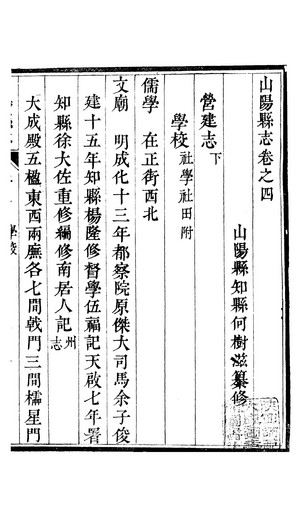 山陽縣志卷之四
山陽縣知縣何樹滋纂修
營建志下
學校社學社田附
儒學 在正街西北
文廟 明成化十三年都察院原傑大司馬余子俊
建十五年知縣楊隆修督學伍福記天啟七年署
知縣徐大佐重修編修南居人記州志
大成殿五楹東西兩廡各七間戟門三間櫺星門